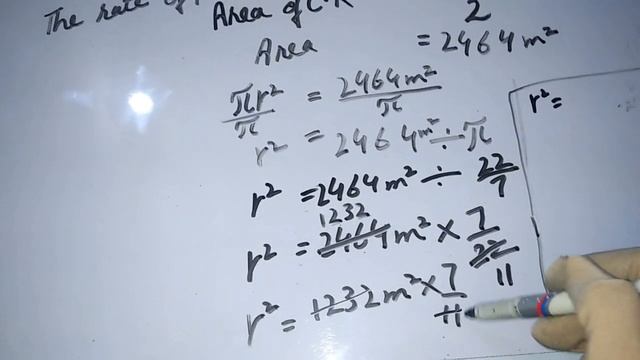 The rate of
Area of
2
Area = 2464 m²
πr²/π = 2464 m²/π
r² = 2464 m² ÷ π
r² = 2464 m² ÷ 22/7
1232
r² = 2464 m² × 7/22
11
r² = 1232 m² × 7/11
r² =